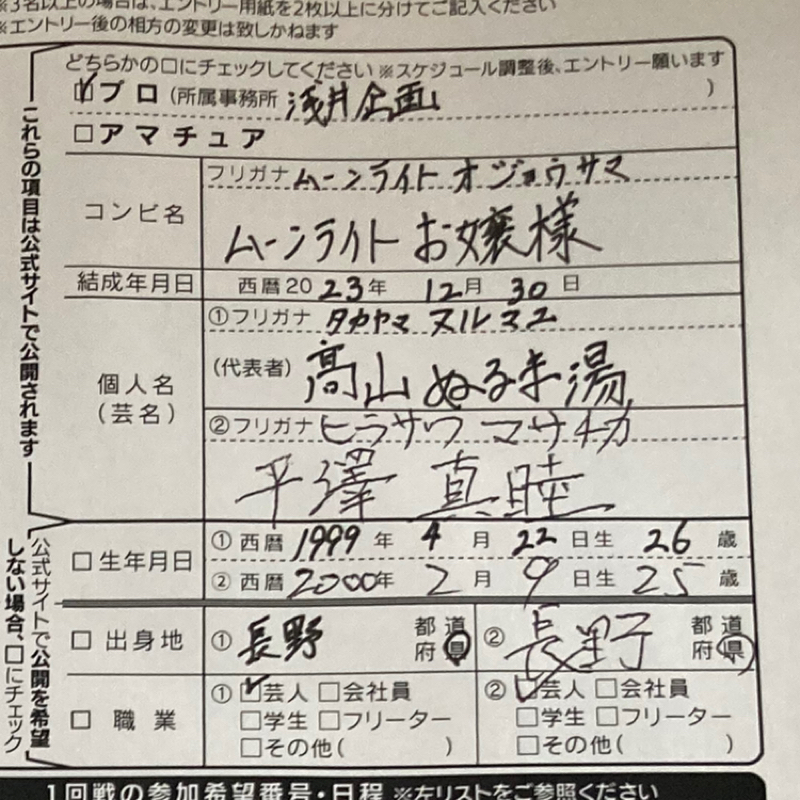 ※3名以上の場合は、エントリー用紙を2枚以上に分けてご記入ください
※エントリー後の相方の変更は致しかねます
これらの項目は公式サイトで公開されます
どちらかの□にチェックしてください ※スケジュール調整後、エントリー願います
☑プロ(所属事務所 浅井企画 )
□アマチュア
コンビ名
フリガナ ムーンライト オジョウサマ
ムーンライトお嬢様
結成年月日 西暦2023年 12月 30日
個人名
(芸名)
①フリガナ タカヤマ ヌルマユ
(代表者) 高山ぬるま湯
②フリガナ ヒラサワ マサチカ
平澤 真睦
公式サイトで公開を希望
しない場合、□にチェック
□生年月日
①西暦1999年 4月 22日生 26歳
②西暦2000年 2月 9日生 25歳
□出身地
①長野 都道府県
②長野 都道府県
□職業
①☑芸人 □会社員
□学生 □フリーター
□その他( )
②☑芸人 □会社員
□学生 □フリーター
□その他( )
1回戦の参加希望番号・日程 ※左リストをご参照ください